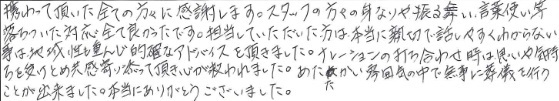 携わって頂いた全ての方々に感謝します。スタッフの方々の身なりや振る舞い、言葉使い等
落ちついた対応全て良かったです。担当していただいた方は本当に親切で話しやすくわからない
事は地域性も重んじ的確なアドバイスを頂きました。ナレーションの打ち合わせ時は思いや気持
ちを受けとめ共感寄り添って頂き心が救われました。あたたかい雰囲気の中で無事に葬儀を行う
ことが出来ました。本当にありがとうございました。